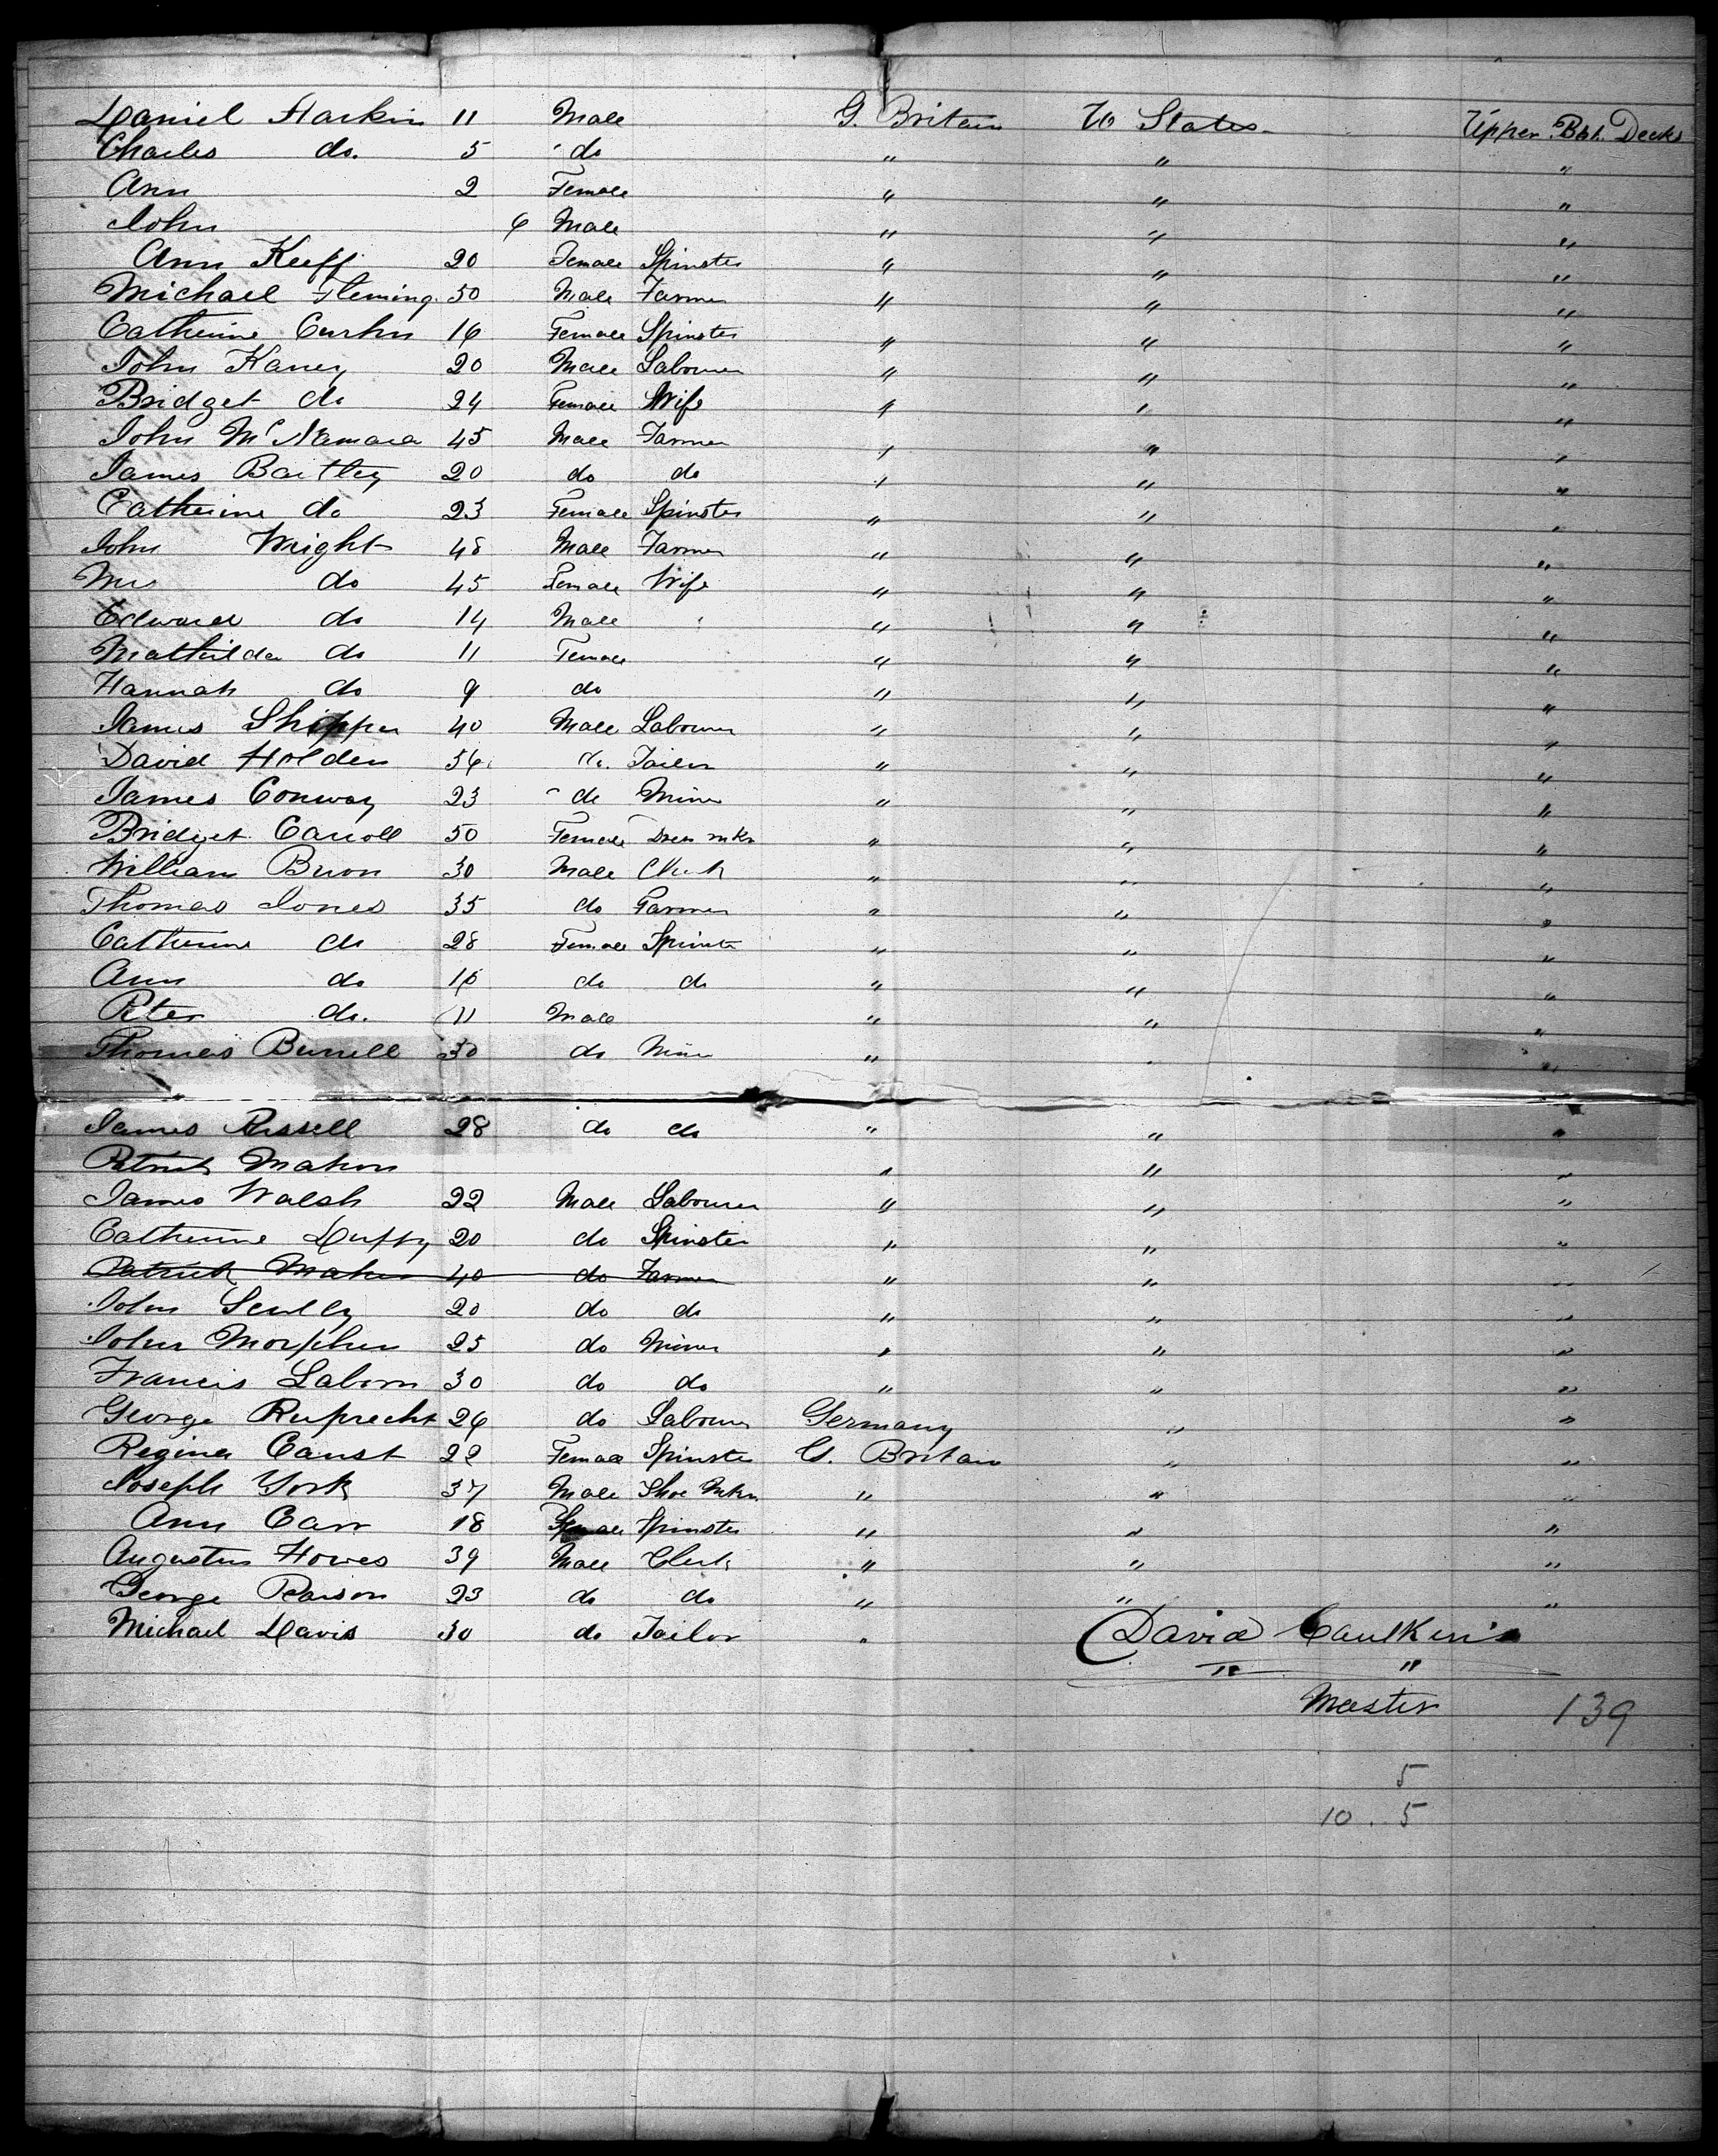 Daniel Harkin 11 Male G. Britain U States Upper Bth. Decks
Charles do. 5 do " " "
Ann 2 Female " " "
John 6 Male " " "
Ann Keeff 20 Female Spinster " " "
Michael Fleming 50 Male Farmer " " "
Catherine 16 Female Spinster " " "
John Kaney 20 Male Labourer " " "
Bridget do 24 Female Wife " " "
John McNamara 45 Male Farmer " " "
James Bartley 20 do do " " "
Catherine do 23 Female Spinster " " "
John Wright 48 Male Farmer " " "
Mrs do 45 Female Wife " " "
Edward do 14 Male " " "
Mathilda do 11 Female " " "
Hannah do 9 do " " "
James 40 Male Labourer " " "
David Holden 56 do. Tailor " " "
James Conway 23 do Miner " " "
Bridget Carroll 50 Female Dress mkr " " "
William 30 Male Clerk " " "
Thomas Jones 35 do Farmer " " "
Catherine do 28 Female Spinster " " "
Ann do do do " " "
Peter do. 11 Male " " "
Thomas Burrell 30 do Miner " " "
James Russell 28 do do " " "
Patrick Mahon " " "
James Walsh 22 Male Labourer " " "
Catherine Duffy 20 do Spinster " " "
Patrick Maher 40 do Farmer " " "
John Scully 20 do do " " "
John 25 do Miner " " "
Francis Laborn 30 do do " " "
George Ruprecht 26 do Labourer Germany " "
Regina Canst 22 Female Spinster G. Britain " "
Joseph York 37 Male Shoe Mkr " " "
Ann Carr 18 Female Spinster " " "
Augustus Howes 39 Male Clerk " " "
George Pearson 23 do do " " "
Michael Davis 30 do Tailor "
David Caulkins
" "
Master 139
5
10 . 5